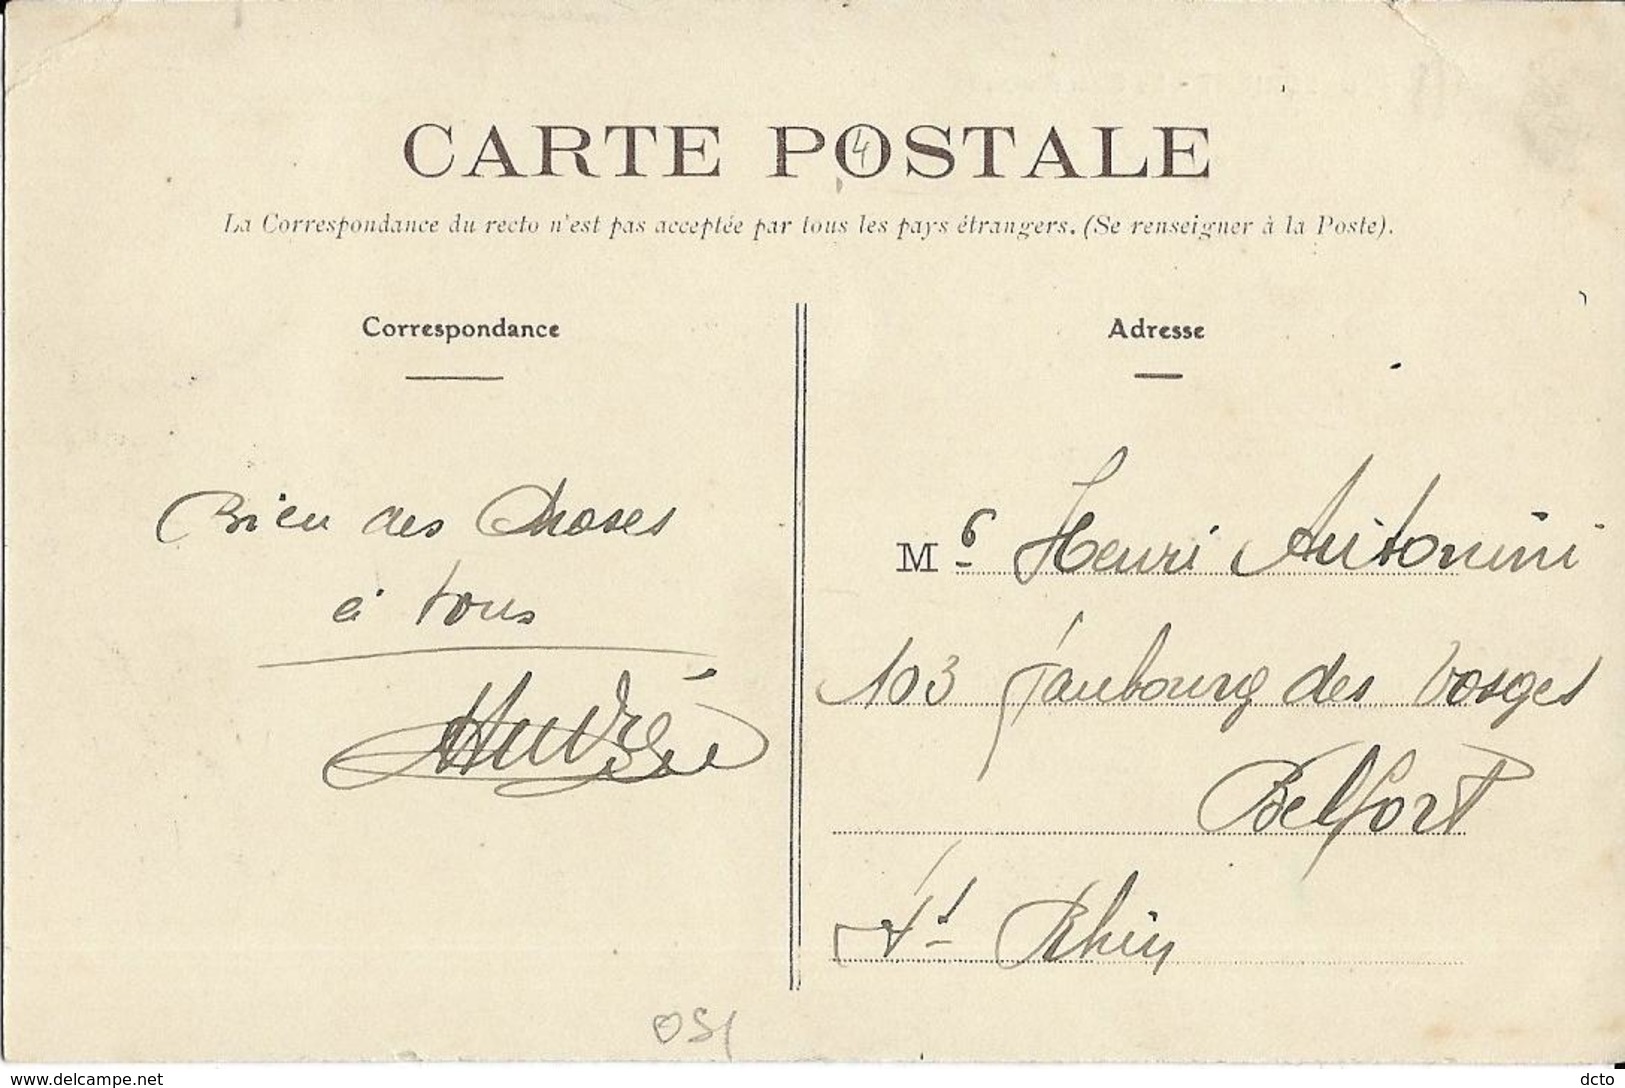 CARTE POSTALE
4
La Correspondance du recto n'est pas acceptée par tous les pays étrangers. (Se renseigner à la Poste).
Correspondance
Adresse
Bien des Choses
à tous
André
M Henri Antonini
103 faubourg des Vosges
Belfort
Ht Rhin
OSI
www.delcampe.net
dcto